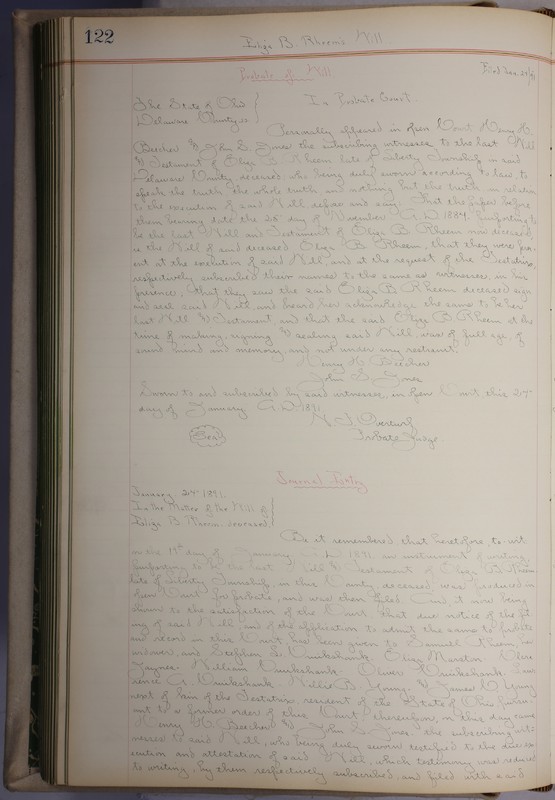 122
Eliza B. Rheem's Will
Probate of Will
The State of Ohio
Delaware County ss
In Probate Court.
Personally appeared in open Court Henry H.
Beecher & John S. Jones the subscribing witnesses to the last Will
& Testament of Eliza B. Rheem late of Liberty Township in said
Delaware County deceased, who being duly sworn according to law, to
speak the truth the whole truth and nothing but the truth in relation
to the execution of said Will depose and say: That the paper before
them bearing date the 25" day of November A.D. 1884, purporting to
be the last Will and Testament of Eliza B. Rheem now deceased,
is the Will of said deceased Eliza B. Rheem, that they were pres-
ent at the execution of said Will, and at the request of the Testatrix,
respectively subscribed their names to the same as witnesses, in her
presence; that they saw the said Eliza B Rheem deceased sign
and seal said Will, and heard her acknowledge the same to be her
last Will & Testament, and that the said Eliza B Rheem at the
time of making, signing & sealing said Will, was of full age, of
sound mind and memory, and not under any restraint.
Henry H. Beecher
John S. Jones
Sworn to and subscribed by said witnesses, in open Court, this 27"
day of January A.D. 1891.
Seal
Overturf
Probate Judge
Journal Entry
January 27" 1891.
In the Matter of the Will of
Eliza B. Rheem deceased.
Be it remembered that heretofore, to-wit:
on the day of January, A.D. 1891, an instrument of writing,
purporting to be the last Will & Testament of Eliza B. Rheem
late of Liberty Township, in this County, deceased, was produced in
open Court for probate, and was then filed. And it now being
shown to the satisfaction of the Court that due notice of the fil-
ing of said Will, and of the application to admit the same to probate
and record in this Court, has been given to Samuel Rheem
and Stephen S. Eliza
William Oliver
A. B. Young, & James Young
next of kin of the Testatrix resident of the State of Ohio pursu-
ant to a former order of this Court; thereupon, on this day came
Henry H. Beecher & John S. Jones, the subscribing wit-
nesses to said Will, who being duly sworn testified to the due ex-
ecution and attestation of said Will, which testimony was reduced
to writing, by them respectively subscribed, and filed with said